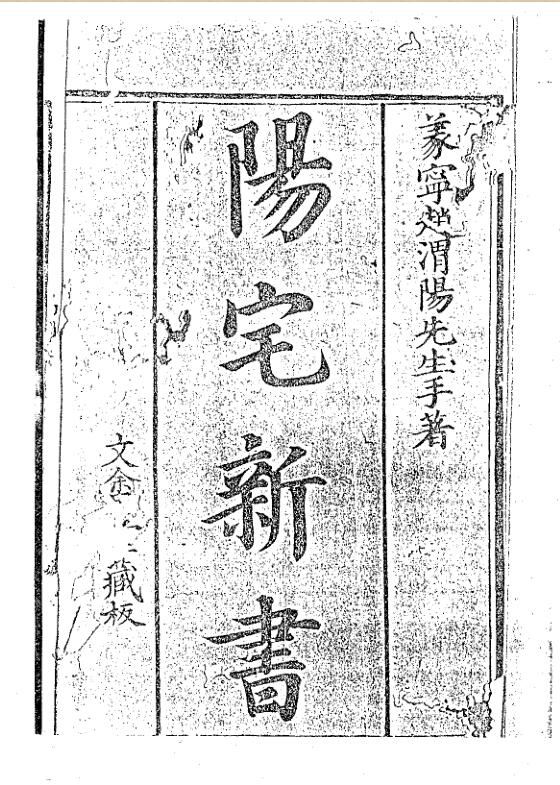 遂寧趙渭陽先生手著
陽宅新書
文金 藏板